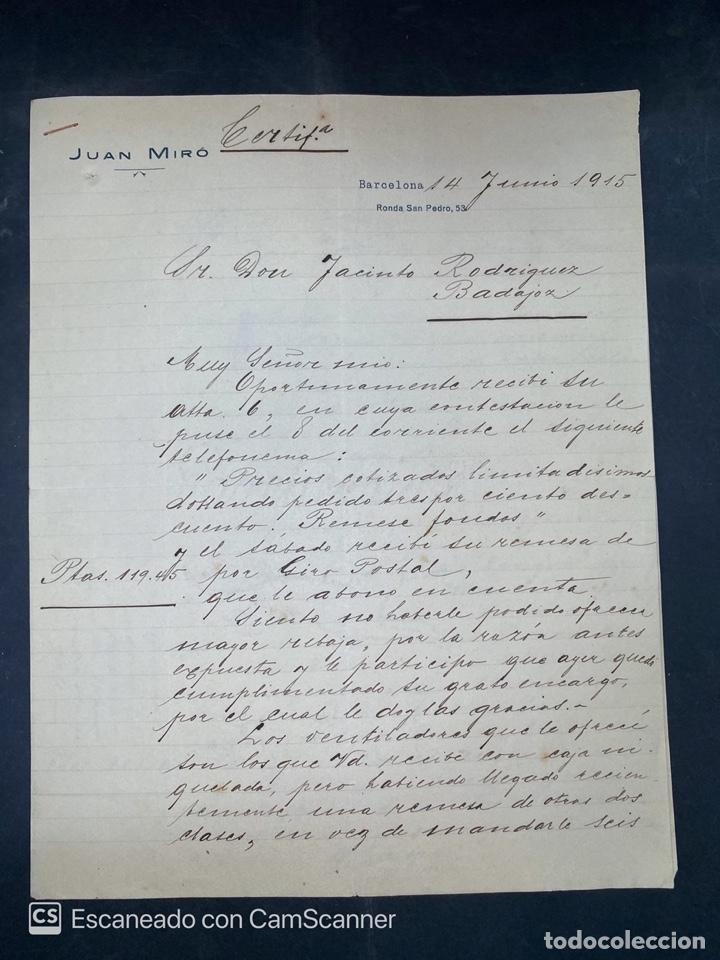 Certif.a
JUAN MIRÓ
Barcelona 14 Junio 1915
Ronda San Pedro, 53
Sr. Don Jacinto Rodriguez
Badajoz
Muy Señor mio:
Oportunamente recibi su
atta. 6, en cuya contestacion le
puse el 8 del corriente el siguiente
telefonema:
" Precios cotizados limitadisimos
doblando pedido tres por ciento des=
cuento. Remese fondos "
y el sábado recibí su remesa de
Ptas. 119.45 por Giro Postal,
que le abono en cuenta.
Siento no haberle podido ofrecer
mayor rebaja, por la razón antes
expuesta y le participo que ayer quedó
cumplimentado su grato encargo,
por el cual le doy las gracias.-
Los ventiladores que le ofrecí
son los que Vd. recibe con caja ni-
quelada, pero habiendo llegado recien-
temente una remesa de otras dos
clases, en vez de mandarle seis
CS Escaneado con CamScanner
todocoleccion.net